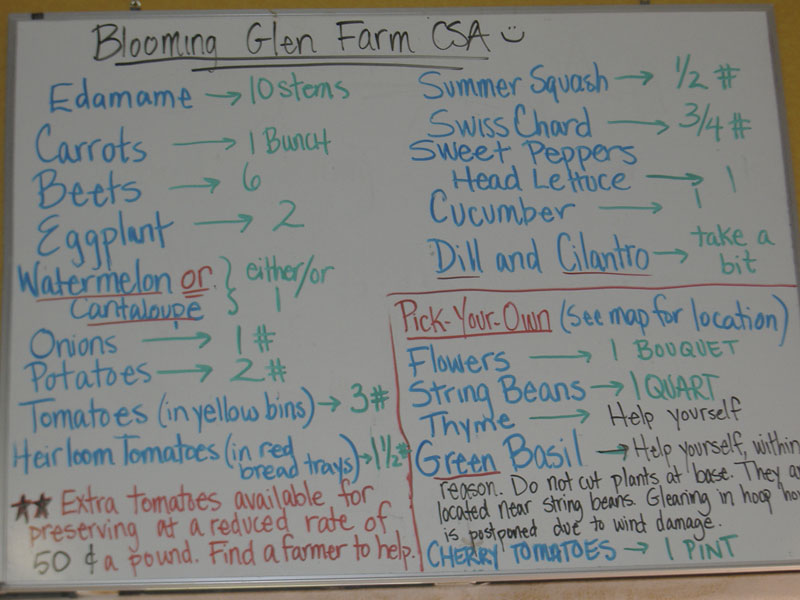 Blooming Glen Farm CSA
Edamame → 10 stems
Carrots → 1 Bunch
Beets → 6
Eggplant → 2
Watermelon or } either/or
Cantaloupe 1
Onions → 1 #
Potatoes → 2 #
Tomatoes (in yellow bins) → 3#
Heirloom Tomatoes (in red
bread trays) → 1 1/2 #
★★ Extra tomatoes available for
preserving at a reduced rate of
50 ¢ a pound. Find a farmer to help.
Summer Squash → 1/2 #
Swiss Chard → 3/4 #
Sweet Peppers
Head Lettuce → 1
Cucumber → 1
Dill and Cilantro → take a
bit
Pick-Your-Own (See map for location)
Flowers → 1 BOUQUET
String Beans → 1 QUART
Thyme → Help yourself
Green Basil → Help yourself, within
reason. Do not cut plants at base. They
located near string beans. Glearing in hoop
is postponed due to wind damage.
CHERRY TOMATOES → 1 PINT